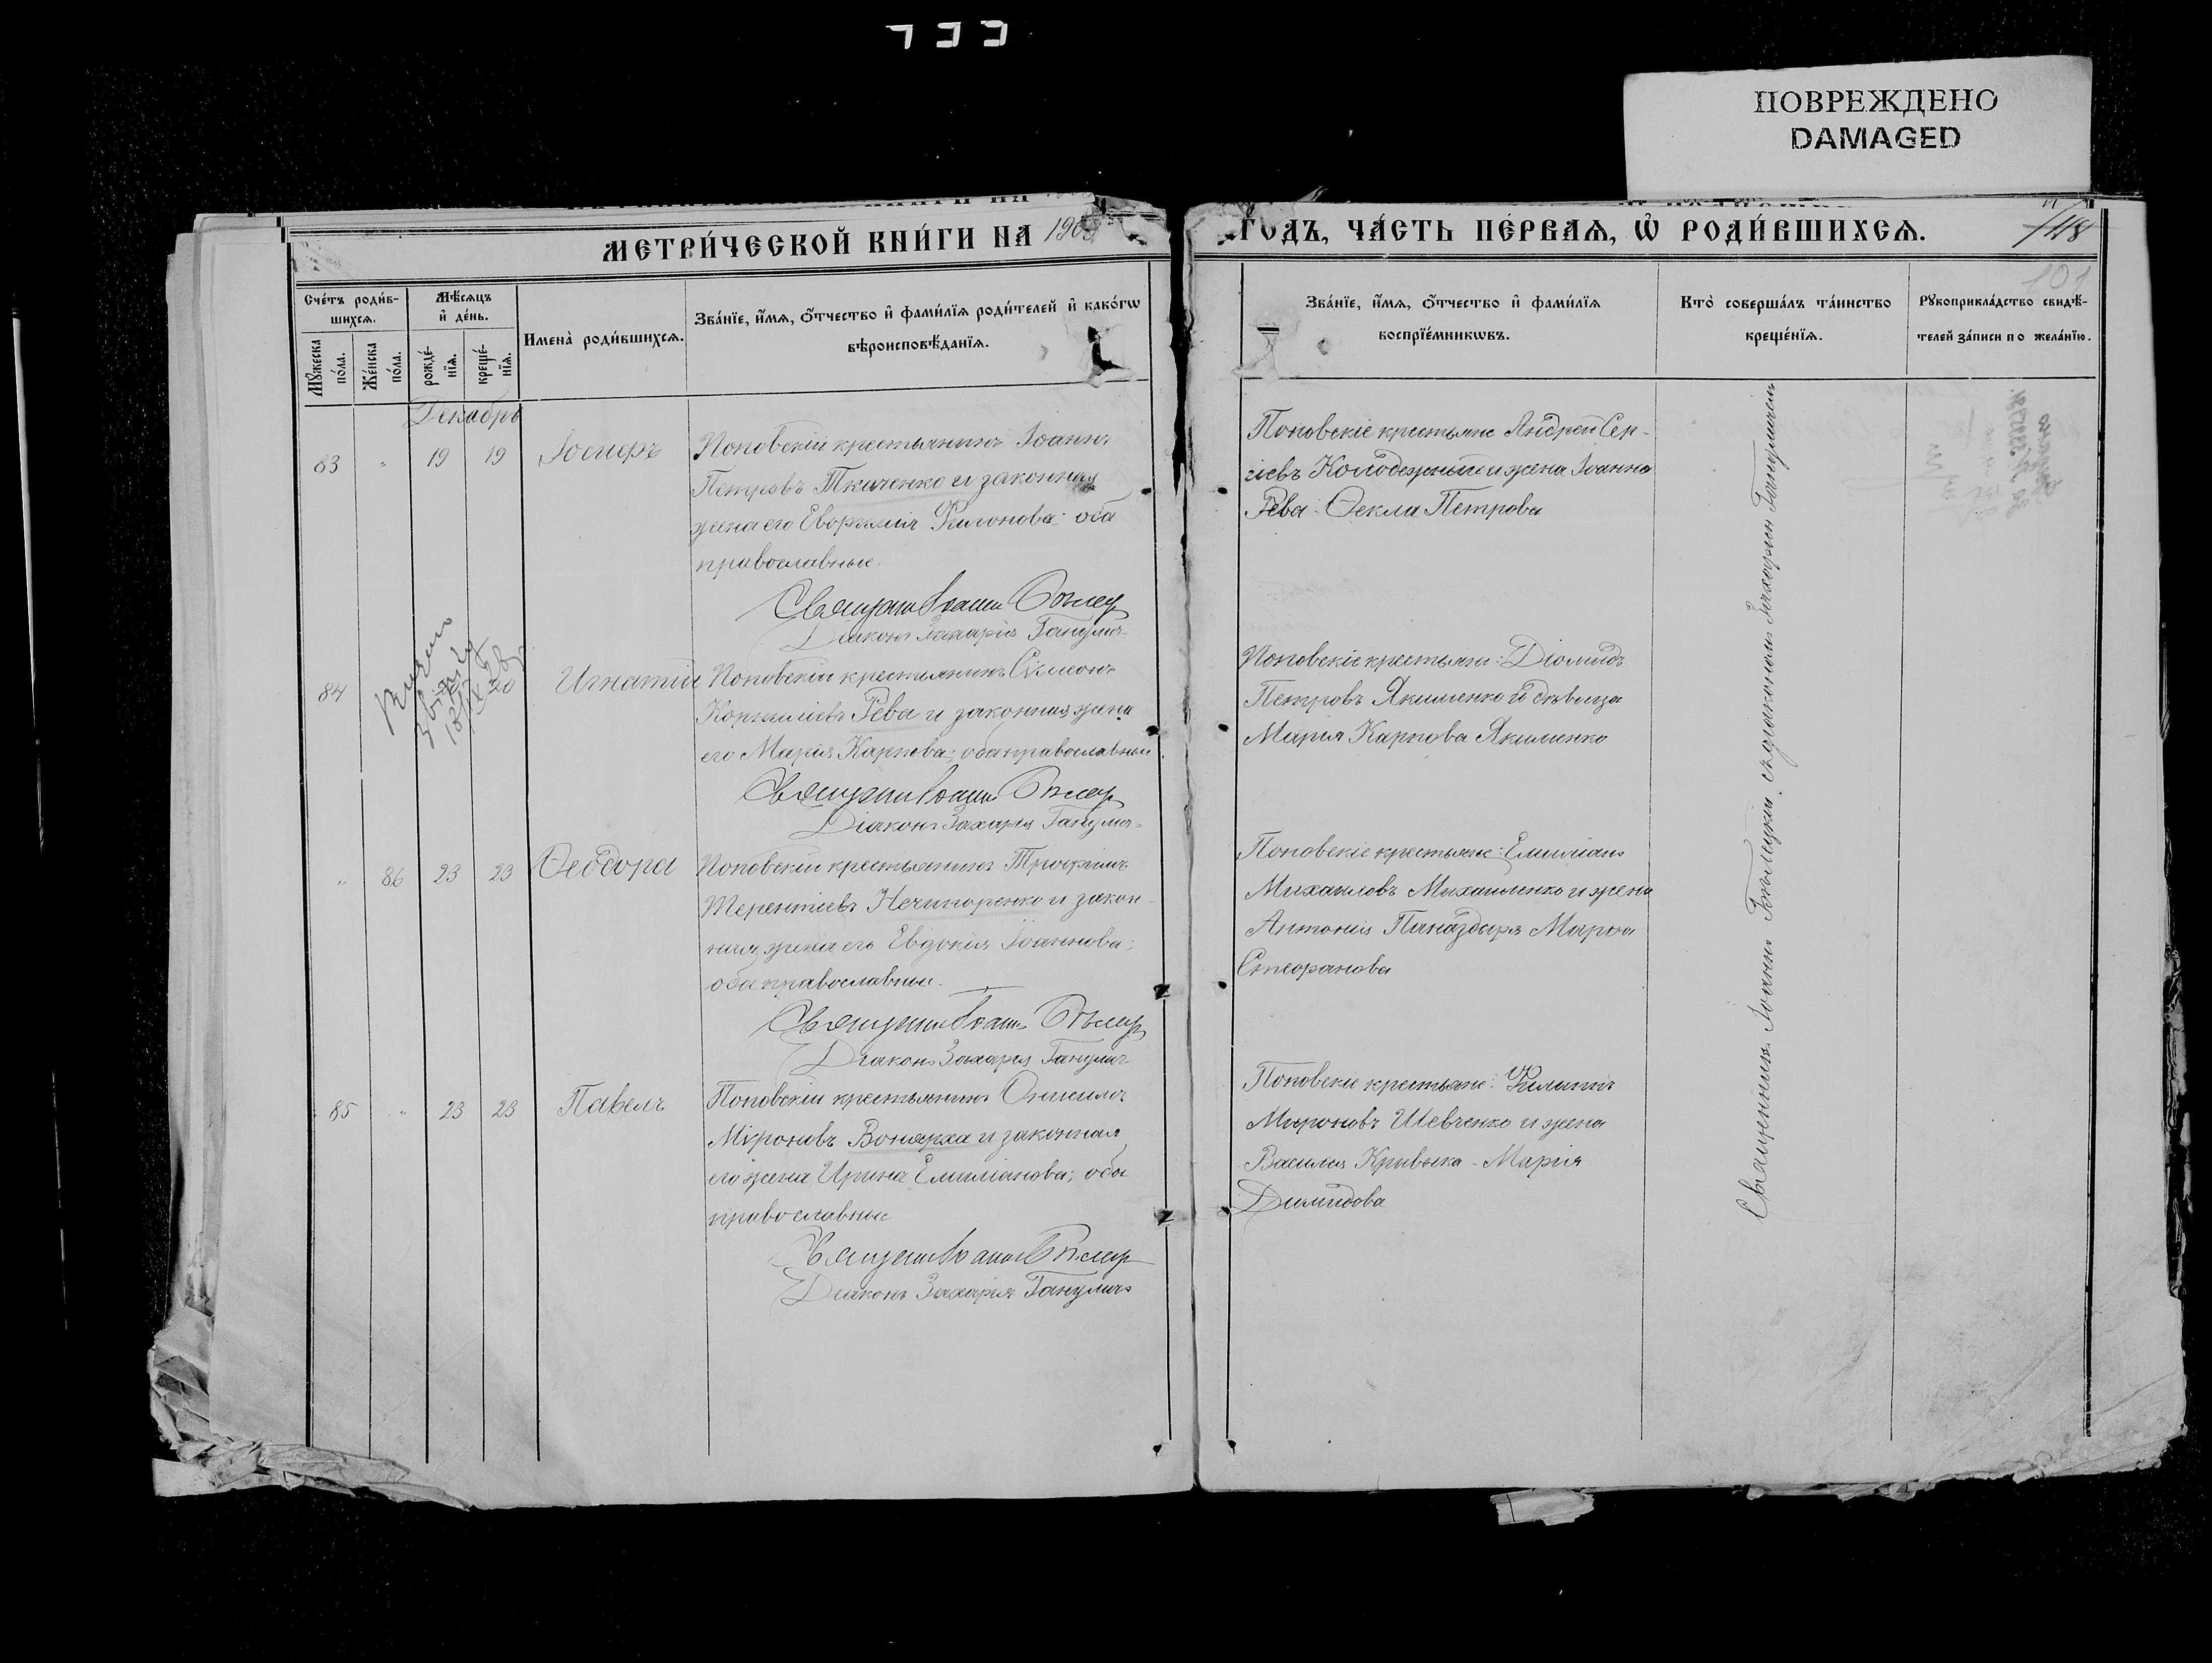 ПОВРЕЖДЕНО
DAMAGED
МЕТРИ́ЧЕСКОЙ КНИ́ГИ НА 190
ГОДЪ, ЧА́СТЬ ПЕ́РВАѦ, Ѡ҆ РОДИ́ВШИХСѦ.
118
101
Сче́тъ роди́в-
шихсѧ.
Мꙋ́жеска
по́ла.
Же́нска
по́ла.
Мѣ́сѧцъ
и҆ де́нь.
рожде́-
нїѧ.
креще́-
нїѧ.
Имена̀ роди́вшихсѧ.
Зва́нїе, и҆́мѧ, ѻ҆́тчество и҆ фами́лїѧ роди́телей и҆ како́гѡ
вѣроисповѣ́данїѧ.
Зва́нїе, и҆́мѧ, ѻ҆́тчество и҆ фами́лїѧ
воспрїе́мникѡвъ.
Кто̀ соверша́лъ та́инство
креще́нїѧ.
Рꙋкоприкла́дство свидѣ́-
телей за́писи по жела́нїю.
Декабрь
83 " 19 19 Іосифъ
Поповскій крестьянинъ Іоаннъ
Петровъ Ткаченко и законная
жена его Евфимія Филонова; оба
православные.
Священ Іоаннъ
Діаконъ Захарія Ганулич
Поповскіе крестьяне Андрей Сер-
гіевъ Колодежный и жена Іоанна
Рева Ѳекла Петрова
84 20 Игнатій
Поповскій крестьянинъ Симеонъ
Корниліевъ Рева и законная жена
его Марія Карпова; оба православные
Священ Іоаннъ
Діаконъ Захарія Ганулич
Поповскіе крестьяне: Діомидъ
Петровъ Якименко и дѣвица
Марія Карпова Якименко
" 86 23 23 Ѳеодора
Поповскій крестьянинъ Трофимъ
Терентіевъ Нечипоренко и закон-
ная жена его Евдокія Іоаннова;
оба православные.
Священ Іоаннъ
Діаконъ Захарія Ганулич
Поповскіе крестьяне: Емиліанъ
Михаиловъ Михаиленко и жена
Антонія Паназдыря Марѳа
Стефанова
85 " 23 23 Павелъ
Поповскій крестьянинъ Онисимъ
Мѵроновъ Вонярха и законная
его жена Ирина Емиліанова; оба
православные
Священ Іоаннъ
Діаконъ Захарія Ганулич
Поповскіе крестьяне: Филиппъ
Мироновъ Шевченко и жена
Василія Кривыка - Марія
Димидова
Священникъ Іоаннъ съ діакономъ Захаріем Гануличем